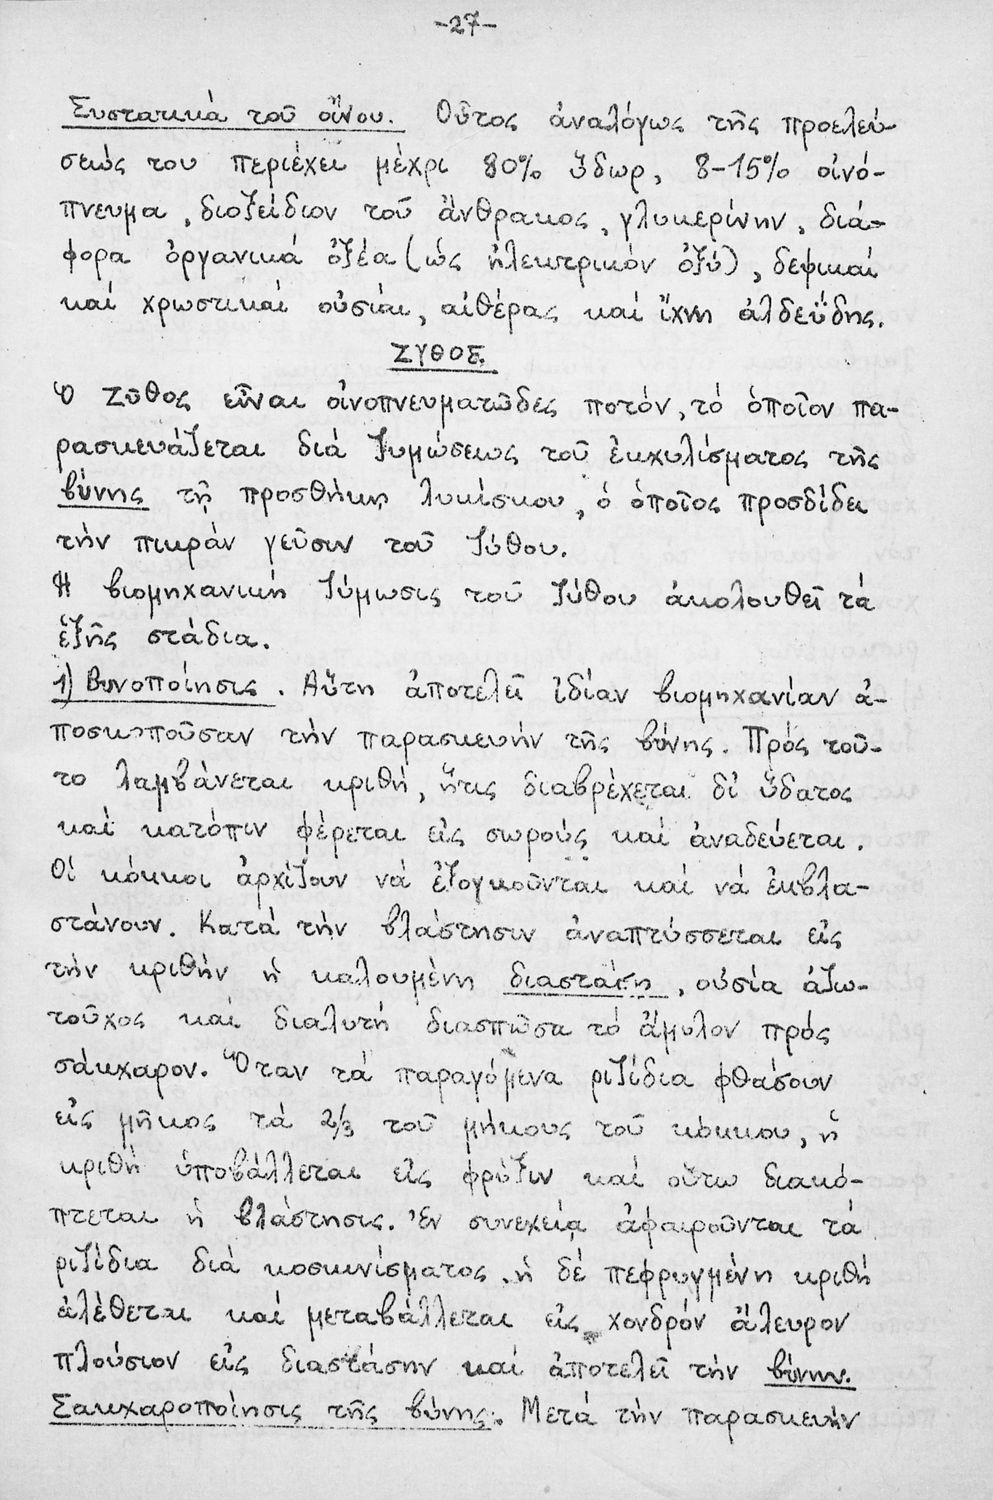 -27-
Συστατικά τοῦ οἴνου. Οὗτος ἀναλόγως τῆς προελεύ-
σεώς του περιέχει μέχρι 80% ὕδωρ, 8-15% οἰνό-
πνευμα, διοξείδιον τοῦ ἄνθρακος, γλυκερίνην, διά-
φορα ὀργανικά ὀξέα (ὡς ἠλεκτρικόν ὀξύ), δεψικαί
καί χρωστικαί οὐσίαι, αἰθέρας καί ἴχνη ἀλδεΰδης.
ΖΥΘΟΣ.
Ὁ Ζῦθος εἶναι οἰνοπνευματῶδες ποτόν, τό ὁποῖον πα-
ρασκευάζεται διά ζυμώσεως τοῦ ἐκχυλίσματος τῆς
βύνης τῇ προσθήκῃ λυκίσκου, ὁ ὁποῖος προσδίδει
τήν πικράν γεῦσιν τοῦ ζύθου.
Ἡ βιομηχανική ζύμωσις τοῦ ζύθου ἀκολουθεῖ τά
ἑξῆς στάδια.
1) Βυνοποίησις. Αὕτη ἀποτελεῖ ἰδίαν βιομηχανίαν ἀ-
ποσκοποῦσαν τήν παρασκευήν τῆς βύνης. Πρός τοῦ-
το λαμβάνεται κριθή, ἥτις διαβρέχεται δι' ὕδατος
καί κατόπιν φέρεται εἰς σωρούς καί ἀναδεύεται.
Οἱ κόκκοι ἀρχίζουν νά ἐξογκοῦνται καί νά ἐκβλα-
στάνουν. Κατά τήν βλάστησιν ἀναπτύσσεται εἰς
τήν κριθήν ἡ καλουμένη διαστάση, οὐσία ἀζω-
τοῦχος καί διαλυτή διασπῶσα τό ἄμυλον πρός
σάκχαρον. Ὅταν τά παραγόμενα ριζίδια φθάσουν
εἰς μῆκος τά 2/3 τοῦ μήκους τοῦ κόκκου, ἡ
κριθή ὑποβάλλεται εἰς φρύξιν καί οὕτω διακό-
πτεται ἡ βλάστησις. Ἐν συνεχείᾳ ἀφαιροῦνται τά
ριζίδια διά κοσκινίσματος, ἡ δέ πεφρυγμένη κριθή
ἀλέθεται καί μεταβάλλεται εἰς χονδρόν ἄλευρον
πλούσιον εἰς διαστάσην καί ἀποτελεῖ τήν βύνην.
Σακχαροποίησις τῆς βύνης. Μετά τήν παρασκευήν